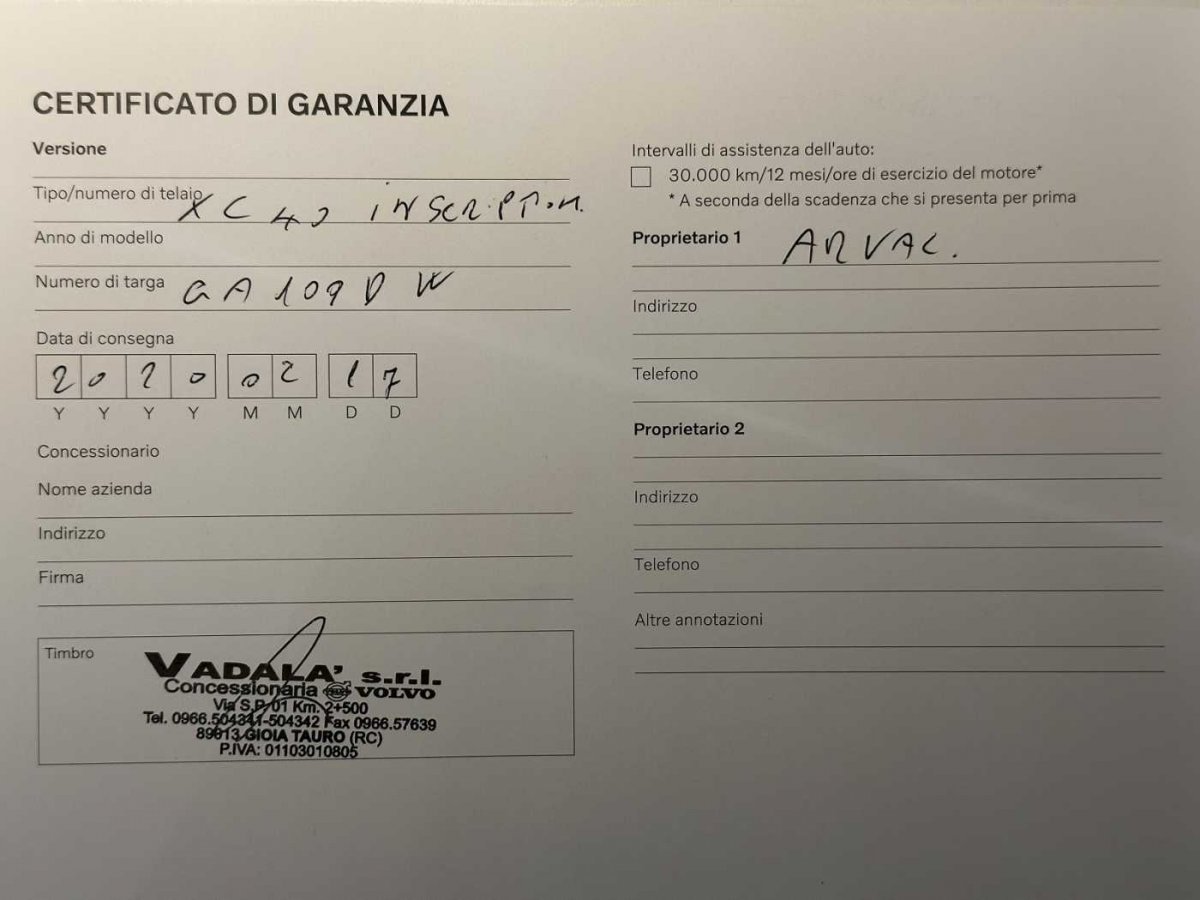 CERTIFICATO DI GARANZIA
Versione
Tipo/numero di telaio XC 40 INSCRIPTION.
Anno di modello
Numero di targa GA 109 DW
Data di consegna
2020 02 17
Y Y Y Y M M D D
Concessionario
Nome azienda
Indirizzo
Firma
Timbro
VADALA' s.r.l.
Concessionaria VOLVO
Via S.P. 01 Km. 2+500
Tel. 0966.504341-504342 Fax 0966.57639
89013 GIOIA TAURO (RC)
P.IVA: 01103010805
Intervalli di assistenza dell'auto:
30.000 km/12 mesi/ore di esercizio del motore*
* A seconda della scadenza che si presenta per prima
Proprietario 1 ARVAL.
Indirizzo
Telefono
Proprietario 2
Indirizzo
Telefono
Altre annotazioni